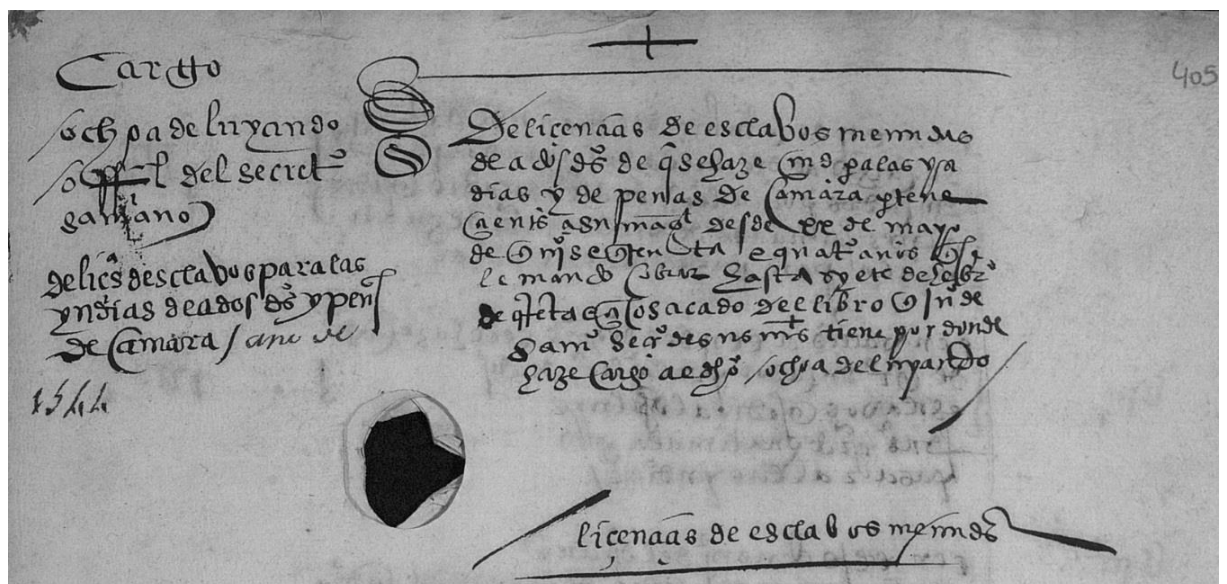 405
Cargo
ochoa de luyando
ofiçial del secretº
samano
de liçªs desclabos para las
yndias de a dos dºs y penas
de Camara / ano de
1544
De liçençias de esclabos
de a dos dºs de q̃ se haze md pa las yn
dias y de penas de Camara pertene
çientes a su magt desde de mayo
de y quatº años
le mando Cobrar hasta syete de
de sacado del libro q̃ Juº de
samº secrº de sus mts tiene por donde
haze Cargo al dhº ochoa de luyando
liçençias de esclabos